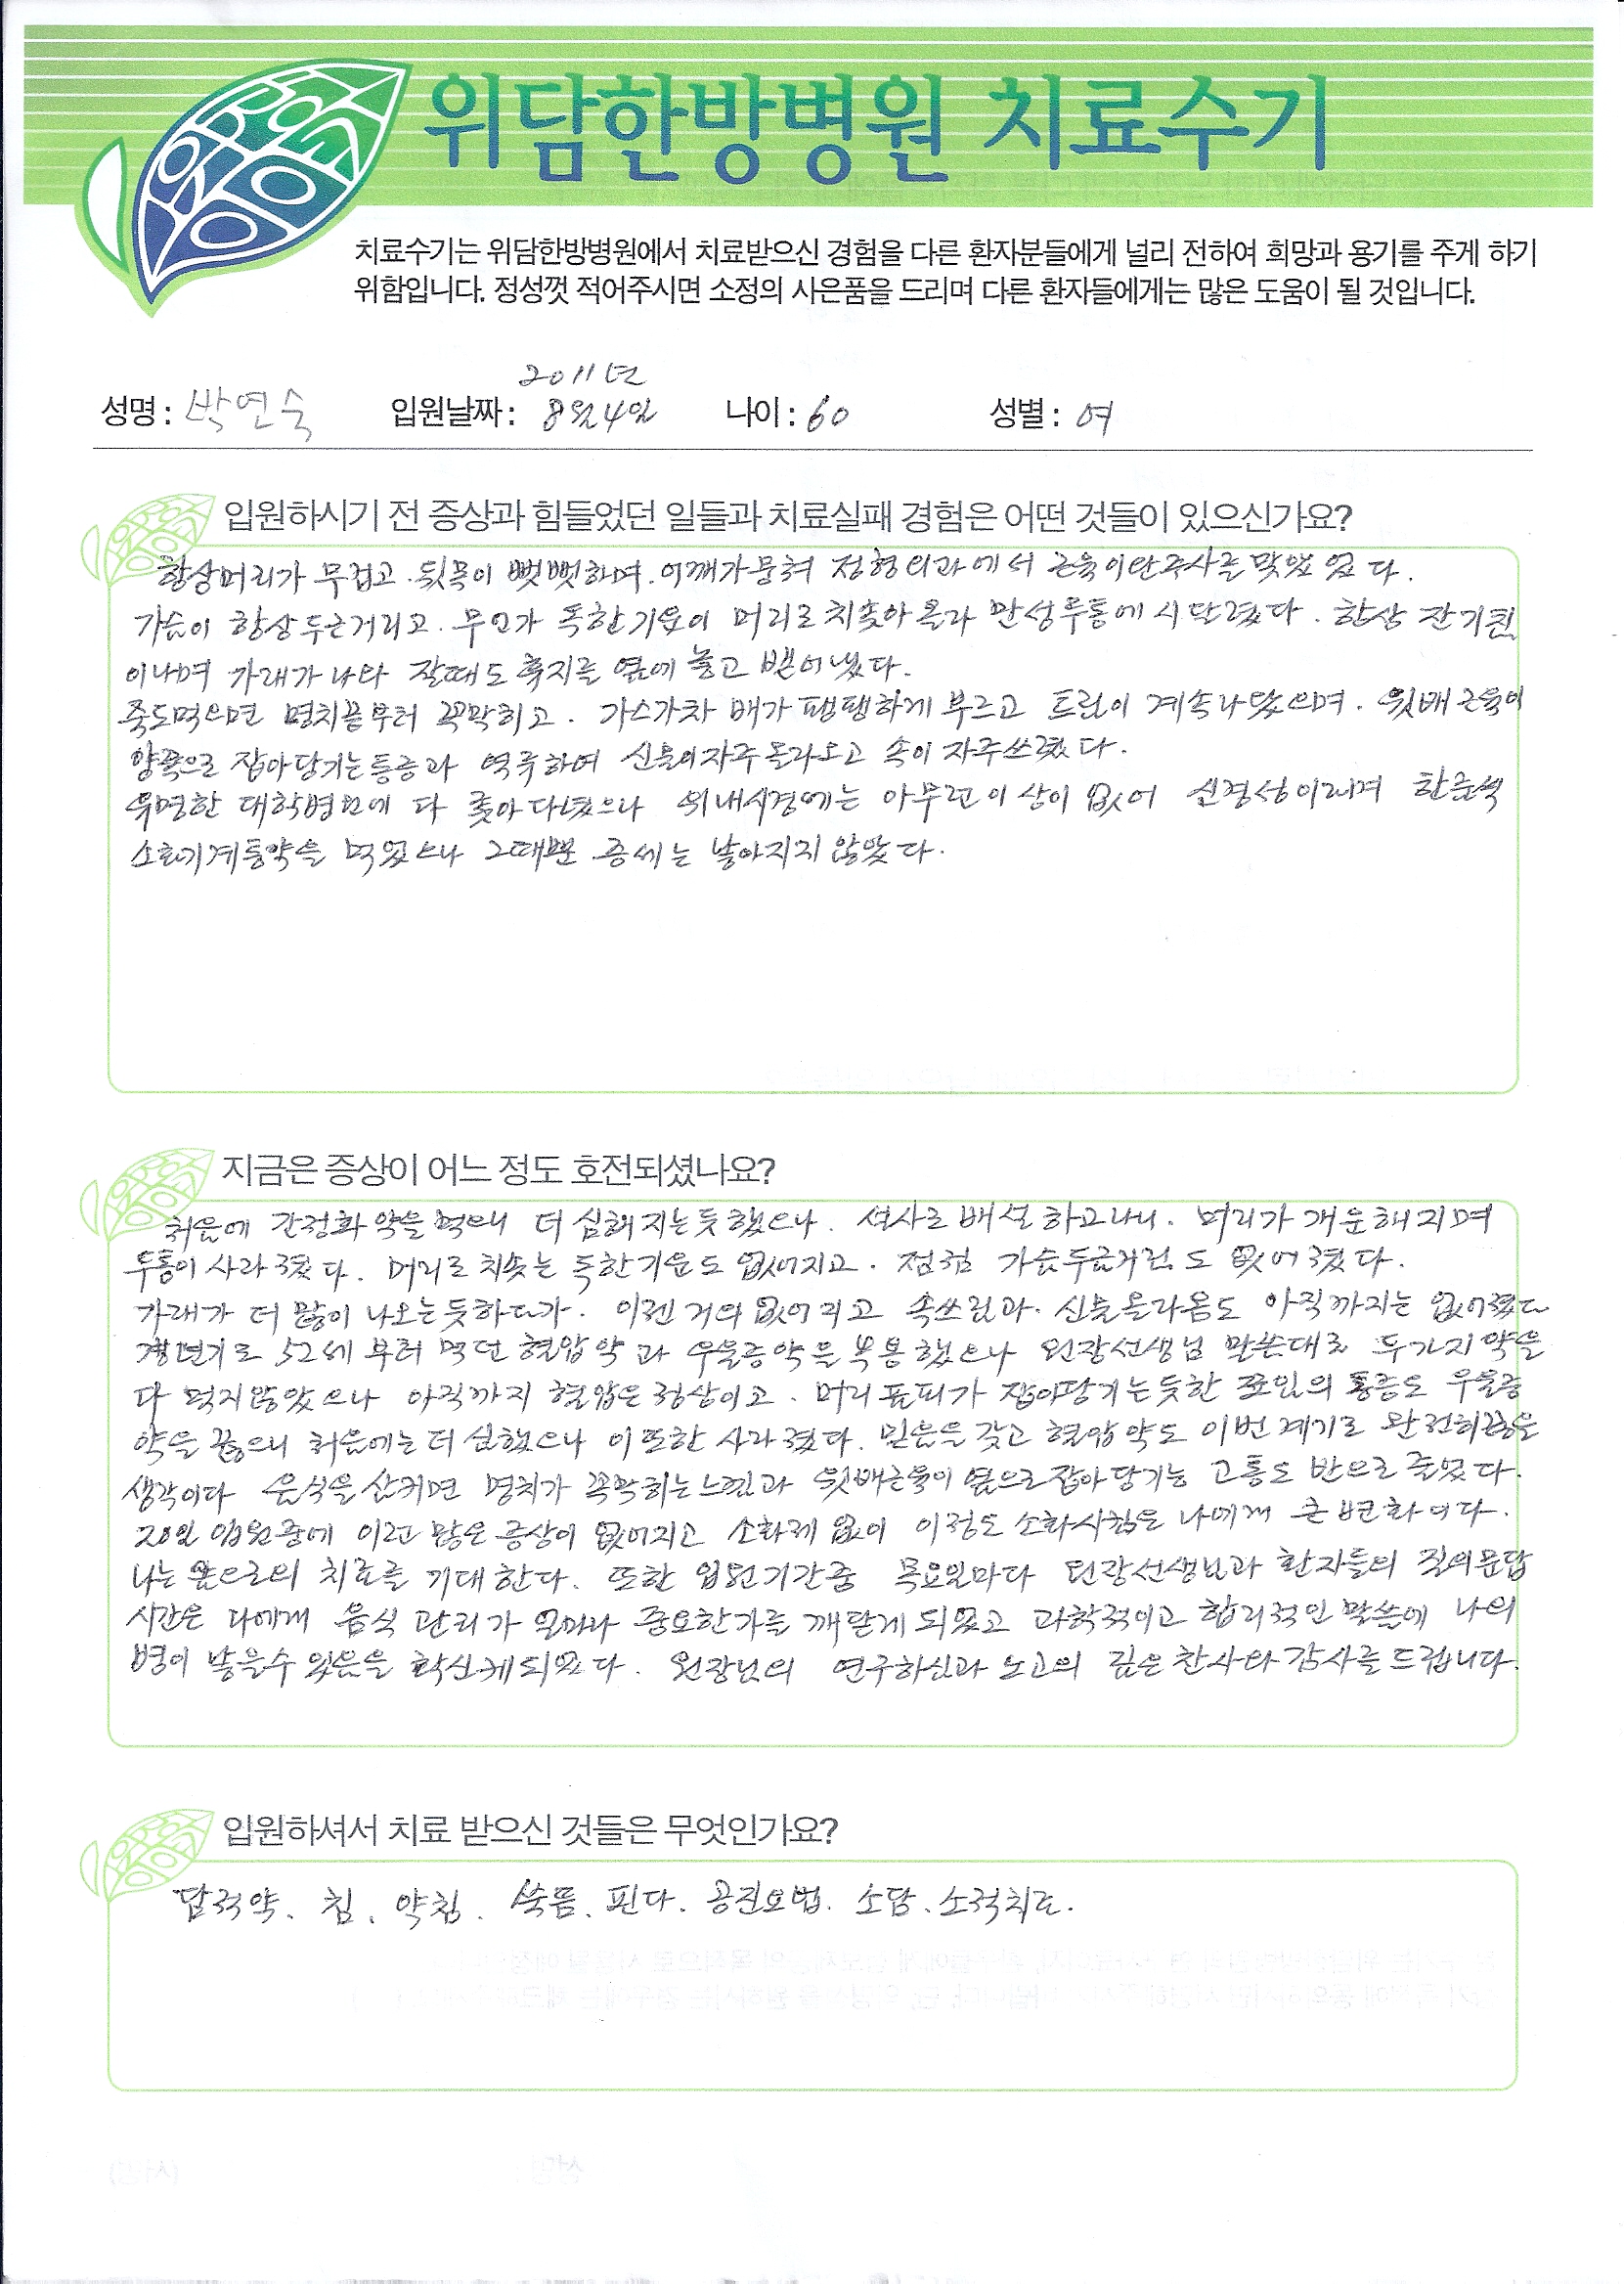 위담한방병원 치료수기
치료수기는 위담한방병원에서 치료받으신 경험을 다른 환자분들에게 널리 전하여 희망과 용기를 주게 하기
위함입니다. 정성껏 적어주시면 소정의 사은품을 드리며 다른 환자들에게는 많은 도움이 될 것입니다.
2011년
성명 : 박연숙 입원날짜 : 8월4일 나이 : 60 성별 : 여
입원하시기 전 증상과 힘들었던 일들과 치료실패 경험은 어떤 것들이 있으신가요?
항상머리가 무겁고. 뒷목이 뻣뻣하며. 어깨가뭉쳐 정형외과에서 근육이완주사를 맞았었다.
가슴이 항상두근거리고. 무언가 독한기운이 머리로치솟아 올라 만성두통에 시달렸다. 항상 잔기침
이나며 가래가 나와 잘때도 휴지를 옆에 놓고 뱉어냈다.
죽도먹으면 명치끝부터 꼭막히고. 가스가차 배가 팽팽하게 부르고 트림이 계속나왔으며. 윗배근육이
양쪽으로 잡아당기는통증과 역류하여 신물이자주올라오고 속이 자주쓰렸다.
유명한 대학병원에 다 찾아다녔으나 위내시경에는 아무런이상이 없어 신경성이라며 한움큼
소화기계통약을 먹었으나 그때뿐 증세는 낳아지지 않았다.
지금은 증상이 어느 정도 호전되셨나요?
처음에 간정화 약을먹으니 더 심해지는듯했으나. 설사로 배설하고나니. 머리가 개운해지며
두통이 사라졌다. 머리로 치솟는 독한기운도 없어지고. 점점 가슴두근거림도 없어졌다.
가래가 더 많이 나오는듯하다가. 이젠 거의 없어지고 속쓰림과. 신물올라옴도 아직까지는 없어졌다
갱년기로 52세부터 먹던 혈압약과 우울증약을 복용했으나 원장선생님 말씀대로 두가지약을
다 먹지않았으나 아직까지 혈압은 정상이고. 머리 표피가 잡아당기는듯한 조임의 통증도 우울증
약을 끊으니 처음에는 더 심했으나 이또한 사라졌다. 믿음을 갖고 혈압약도 이번계기로 완전히끊을
생각이다 음식을 삼키면 명치가 꼭막히는느낌과 윗배근육이 옆으로잡아당기는 고통도 반으로 줄었다.
20일 입원중에 이런 많은 증상이 없어지고 소화제 없이 이정도 소화시킴은 나에게 큰변화이다.
나는 앞으로의 치료를 기대한다. 또한 입원기간중 목요일마다 원장선생님과 환자들의 질의문답
시간은 나에게 음식 관리가 얼마나 중요한가를 깨닫게되었고 과학적이고 합리적인 말씀에 나의
병이 낳을수 있음을 확신케되었다. 원장님의 연구하심과 노고의 깊은찬사와 감사를드립니다.
입원하셔서 치료 받으신 것들은 무엇인가요?
담적약、침、약침、쑥뜸、핀다. 공진요법. 소담、소적치료.